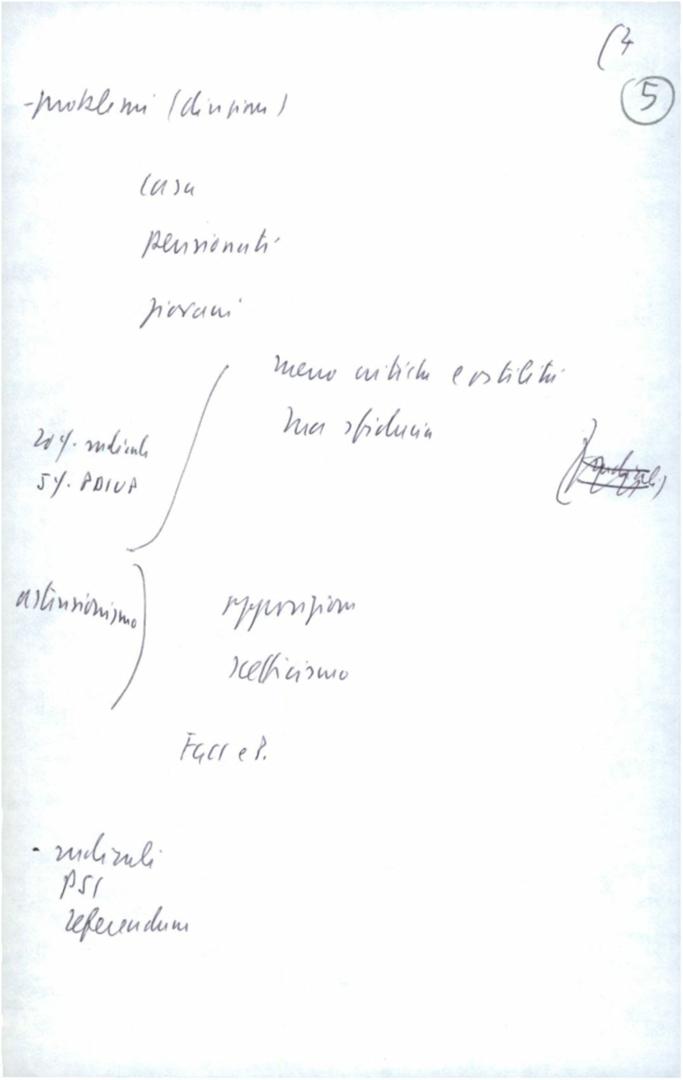 (4
5
- problemi (divisioni)
casa
pensionati
giovani
meno critiche e ostilità
ma sfiducia
20%. radicali
5%. PDIUP
astensionismo
opposizioni
scetticismo
- radicali
PSI
referendum